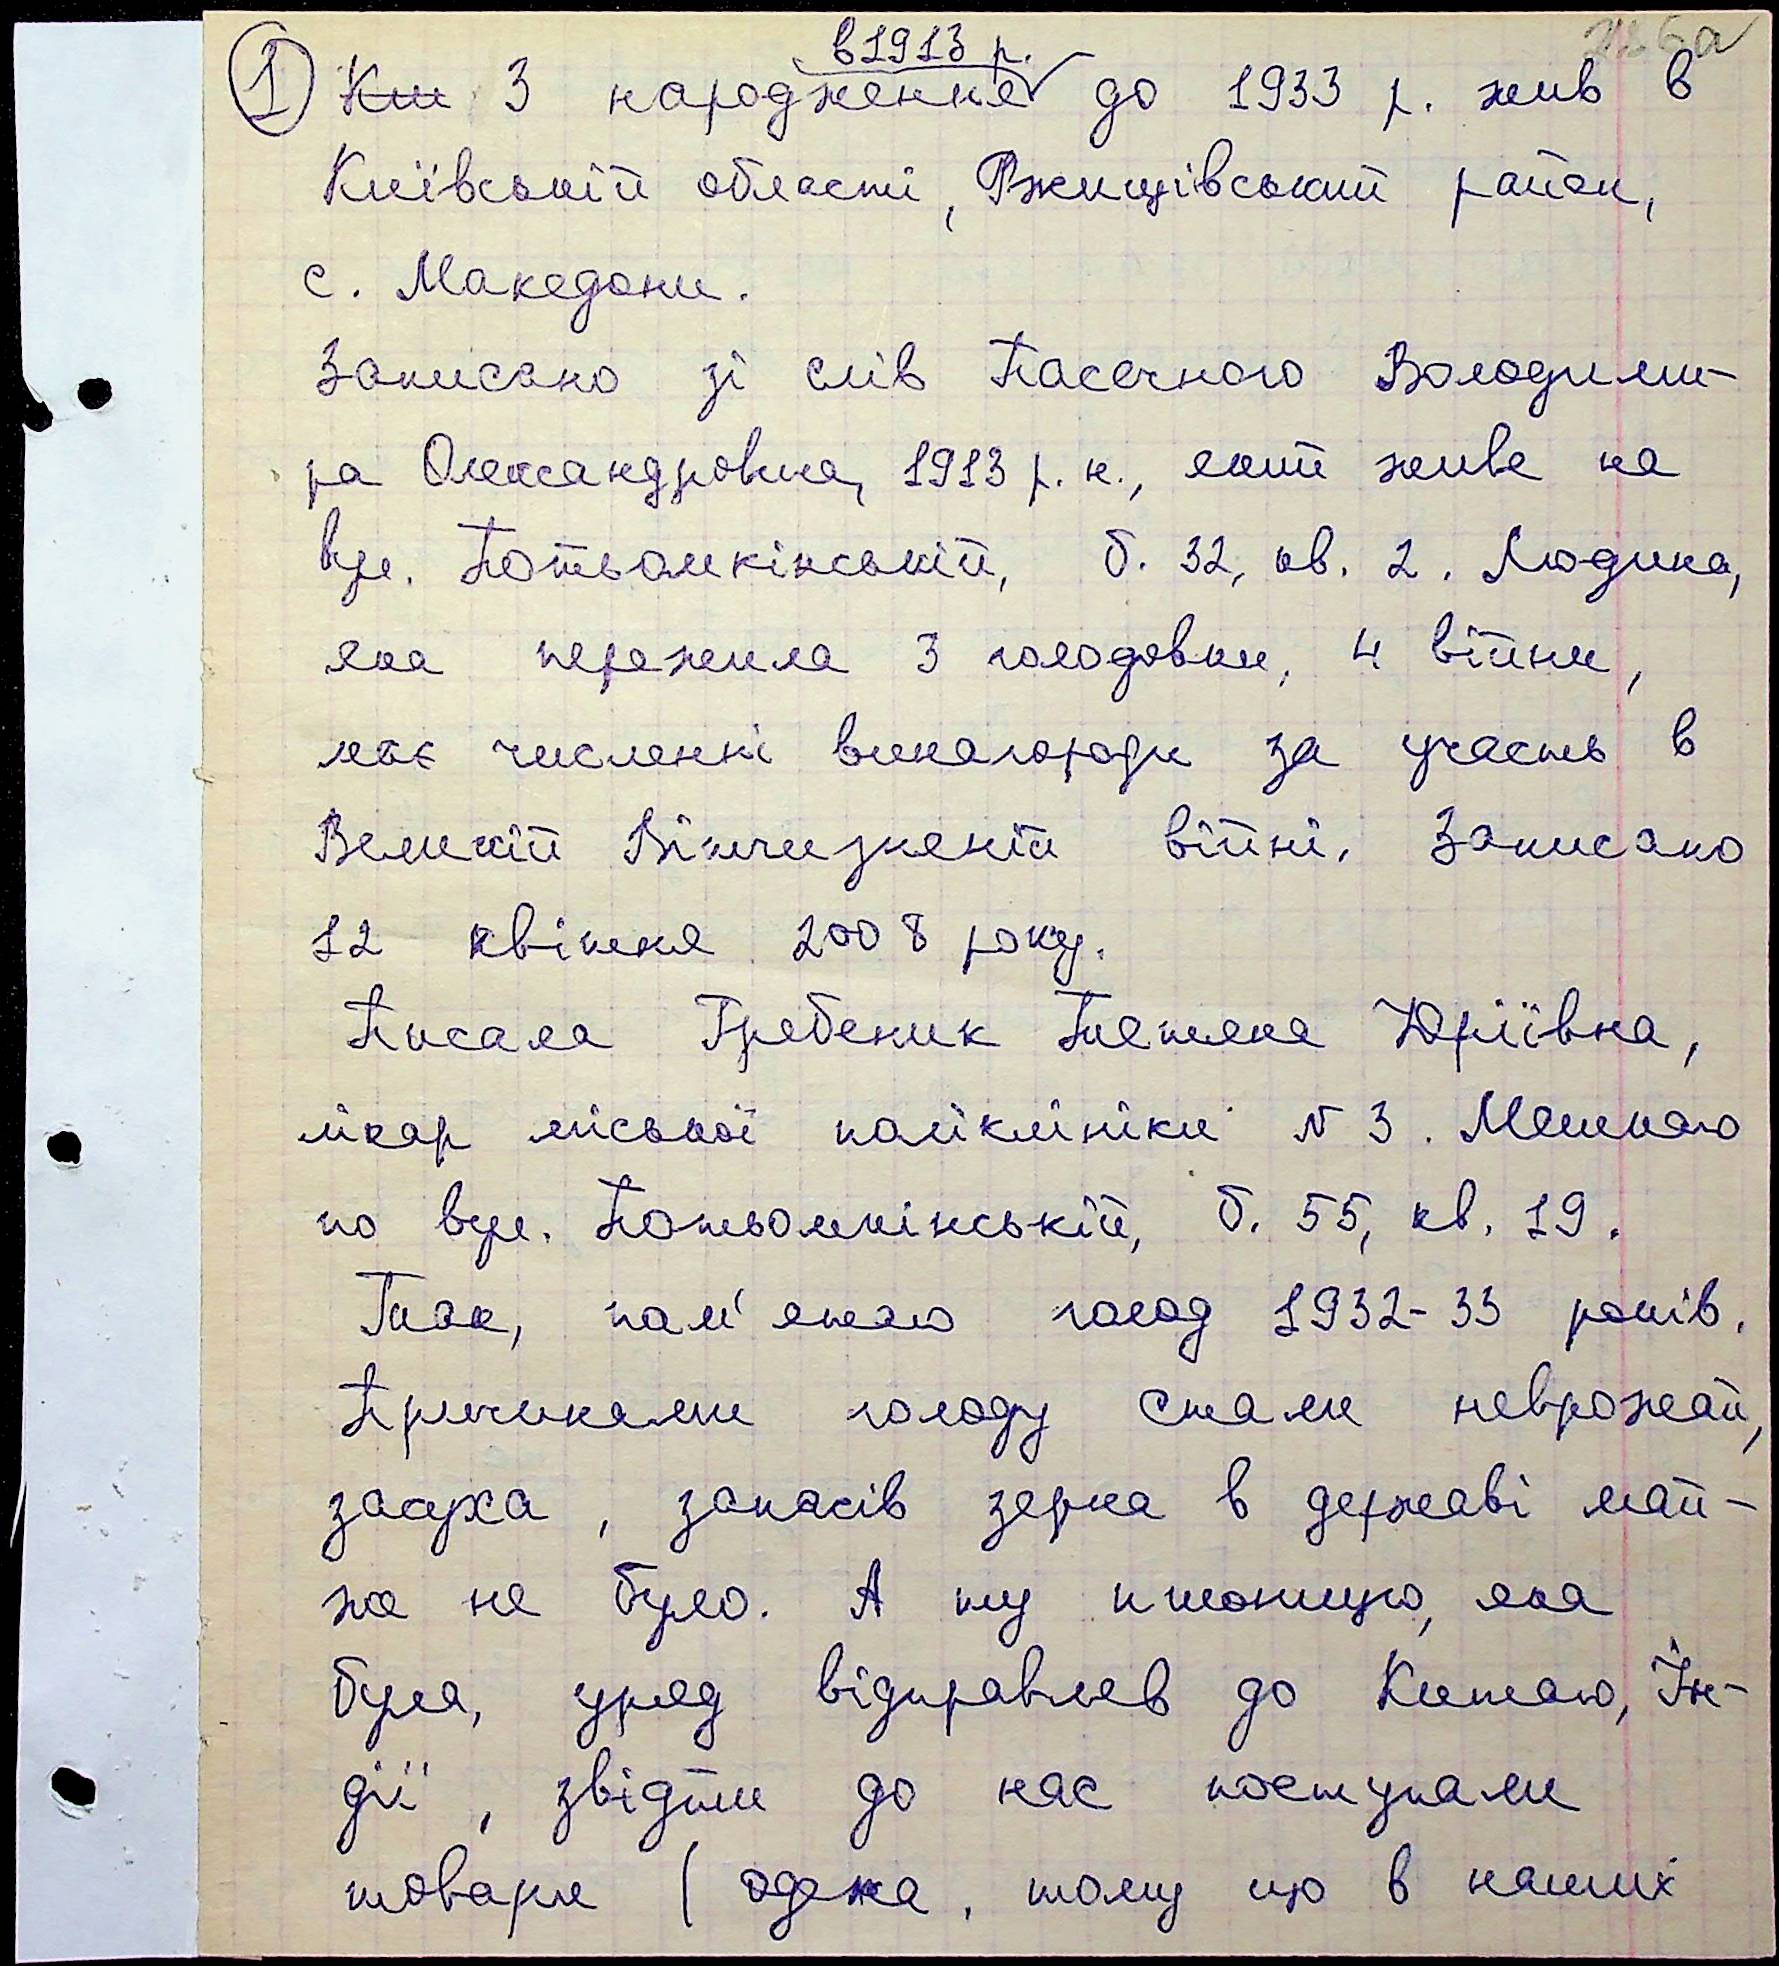 в 1913 р.
1 З народження до 1933 р. жив в
Київській області, Ржищівський район,
с. Македони.
Записано зі слів Пасечного Володими-
ра Олександровича, 1913 р. н., який живе на
вул. Потьомкінській, б. 32, кв. 2. Людина,
яка пережила 3 голодовки, 4 війни,
має численні винагороди за участь в
Великій Вітчизняній війні. Записано
12 квітня 2008 року.
Писала Гребеник Тетяна Юріївна,
лікар міської поліклініки № 3. Мешкаю
по вул. Потьомкінській, б. 55, кв. 19.
Так, пам'ятаю голод 1932-33 років.
Причинами голоду стали неврожай,
засуха, запасів зерна в державі май-
же не було. А ту пшоницю, яка
була, уряд відправляв до Китаю, Ін-
дії, звідти до нас поступали
товари (одежа, тому що в наших